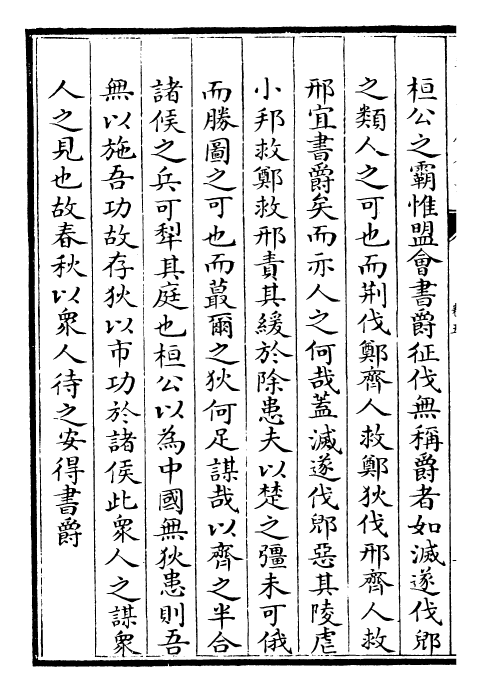 桓公之霸惟盟會書爵征伐無稱爵者如滅遂伐郳
之類人之可也而荆伐鄭齊人救鄭狄伐邢齊人救
邢宜書爵矣而亦人之何哉蓋滅遂伐郳惡其陵虐
小邦救鄭救邢責其緩於除患夫以楚之彊未可俄
而勝圖之可也而蕞爾之狄何足謀哉以齊之半合
諸侯之兵可犁其庭也桓公以為中國無狄患則吾
無以施吾功故存狄以市功於諸侯此衆人之謀衆
人之見也故春秋以衆人待之安得書爵